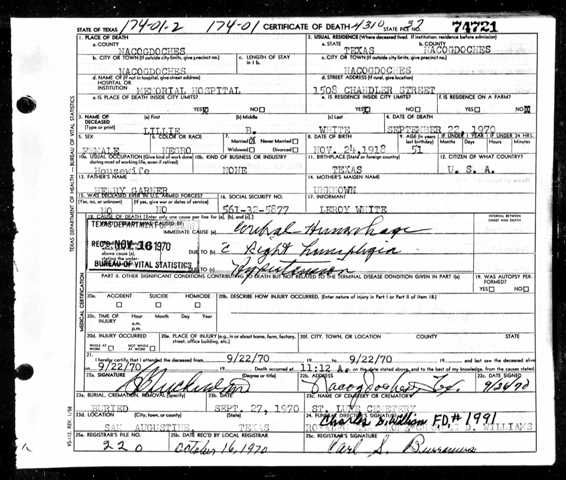 174-01-2 174-01 4310 27
STATE OF TEXAS CERTIFICATE OF DEATH STATE FILE NO. 74721
1. PLACE OF DEATH 2. USUAL RESIDENCE (Where deceased lived. If institution, residence before admission)
a. COUNTY a. STATE b. COUNTY
NACOGDOCHES TEXAS NACOGDOCHES
b. CITY OR TOWN (If outside city limits, give precinct no.) c. LENGTH OF STAY in 1 b. c. CITY OR TOWN (If outside city limits, give precinct no.)
NACOGDOCHES NACOGDOCHES
d. NAME OF (If not in hospital, give street address) HOSPITAL OR INSTITUTION d. STREET ADDRESS (If rural, give location)
MEMORIAL HOSPITAL 1508 CHANDLER STREET
e. IS PLACE OF DEATH INSIDE CITY LIMITS? e. IS RESIDENCE INSIDE CITY LIMITS? f. IS RESIDENCE ON A FARM?
YES NO YES NO YES NO
3. NAME OF DECEASED (a) First (b) Middle (c) Last 4. DATE OF DEATH
(Type or print) LILLIE B. WHITE SEPTEMBER 22, 1970
5. SEX 6. COLOR OR RACE 7. Married Never Married Widowed Divorced 8. DATE OF BIRTH 9. AGE (In years last birthday) IF UNDER 1 YEAR IF UNDER 24 HRS.
Months Days Hours Minutes
FEMALE NEGRO NOV. 24, 1918 51
10a. USUAL OCCUPATION (Give kind of work done during most of working life, even if retired) 10b. KIND OF BUSINESS OR INDUSTRY 11. BIRTHPLACE (State or foreign country) 12. CITIZEN OF WHAT COUNTRY?
Housewife NONE TEXAS U. S. A.
13. FATHER'S NAME 14. MOTHER'S MAIDEN NAME
HENRY GARNER UNKNOWN
15. WAS DECEASED EVER IN U.S. ARMED FORCES? 16. SOCIAL SECURITY NO. 17. INFORMANT
(Yes, no, or unknown) (If yes, give war or dates of service)
NO NO 561-32-5877 LEROY WHITE
18. CAUSE OF DEATH (Enter only one cause per line for (a), (b), and (c).) INTERVAL BETWEEN ONSET AND DEATH
TEXAS DEPARTMENT OF
IMMEDIATE CAUSE (a) Cerebral Hemorrhage
REC'D NOV 16 1970
DUE TO (b) c Right hemiplegia
BUREAU OF VITAL STATISTICS
DUE TO (c) Hypertension
PART II. OTHER SIGNIFICANT CONDITIONS CONTRIBUTING TO DEATH BUT NOT RELATED TO THE TERMINAL DISEASE CONDITION GIVEN IN PART I(a) 19. WAS AUTOPSY PERFORMED?
YES NO
20a. ACCIDENT SUICIDE HOMICIDE 20b. DESCRIBE HOW INJURY OCCURRED. (Enter nature of injury in Part I or Part II of item 18.)
20c. TIME OF INJURY Hour Month Day Year
20d. INJURY OCCURRED 20e. PLACE OF INJURY (e.g., in or about home, farm, factory, street, office building, etc.) 20f. CITY, TOWN, OR LOCATION COUNTY STATE
WHILE AT WORK NOT WHILE AT WORK
21. I hereby certify that I attended the deceased from 9/22/70 19 to 9/22/70 19 and last saw the deceased alive
on 9/22/70 19 Death occurred at 11:12 A. m. on the date stated above, and to the best of my knowledge, from the causes stated.
22a. SIGNATURE (Degree or title) 22b. ADDRESS 22c. DATE SIGNED
Nacogdoches Tex.
23a. BURIAL, CREMATION, REMOVAL (Specify) 23b. DATE 23c. NAME OF CEMETERY OR CREMATORY
BURIED SEPT. 27, 1970 ST. LUKE CEMETERY
23d. LOCATION (City, town, or county) (State) 24. FUNERAL DIRECTOR'S SIGNATURE
Charles D. William F.D.# 1991
SAN AUGUSTINE, TEXAS WILLIAMS
25a. REGISTRAR'S FILE NO. 25b. DATE REC'D BY LOCAL REGISTRAR 25c. REGISTRAR'S SIGNATURE
220 October 16, 1970
TEXAS DEPARTMENT OF HEALTH — BUREAU OF VITAL STATISTICS
MEDICAL CERTIFICATION